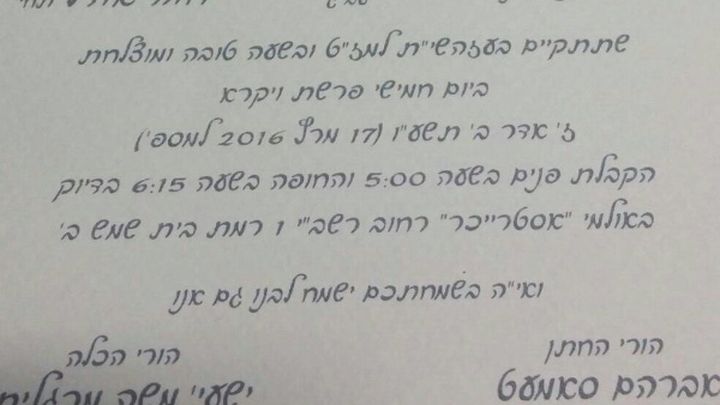 שתתקיים בעזהשי"ת למז"ט ובשעה טובה ומוצלחת
ביום חמישי פרשת ויקרא
ז' אדר ב' תשע"ו (17 מרץ 2016 למספ')
הקבלת פנים בשעה 5:00 והחופה בשעה 6:15 בדיוק
באולמי "אסטרייכר" רחוב רשב"י 1 רמת בית שמש ב'
ואי"ה בשמחתכם ישמח לבנו גם אנו
הורי החתן הורי הכלה
אברהם סאמעט ישעי' משה מרגליות